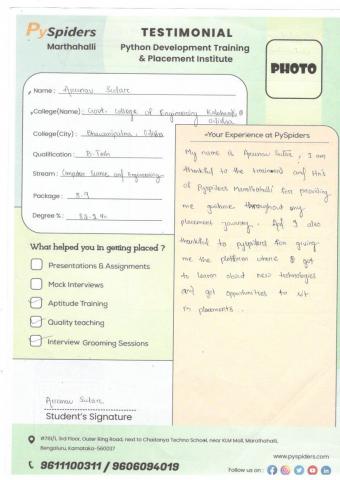 PySpiders
Marthahalli
TESTIMONIAL
Python Development Training
& Placement Institute
PHOTO
Name :
College(Name) : Govt. College of Engineering Kalahandi
odisha
College(City) : Bhawanipatna, Odisha
Qualification : B-Tech
Stream : Computer Science and Engineering
Package :
Degree % :
What helped you in getting placed ?
Presentations & Assignments
Mock Interviews
Aptitude Training
Quality teaching
Interview Grooming Sessions
Your Experience at PySpiders
My name is , I am
thankful to the trainers and Hr's
of Pyspiders Marathahalli for providing
me guidance throughout my
placement journey. And I also
thankful to pyspiders for giving
me the platform where I got
to learn about new technologies
and get opportunities to sit
in placements.
Student's Signature
#781/1, 3rd Floor, Outer Ring Road, next to Chaitanya Techno School, near KLM Mall, Marathahalli,
Bengaluru, Karnataka-560037
9611100311 / 9606094019
www.pyspiders.com
Follow us on :